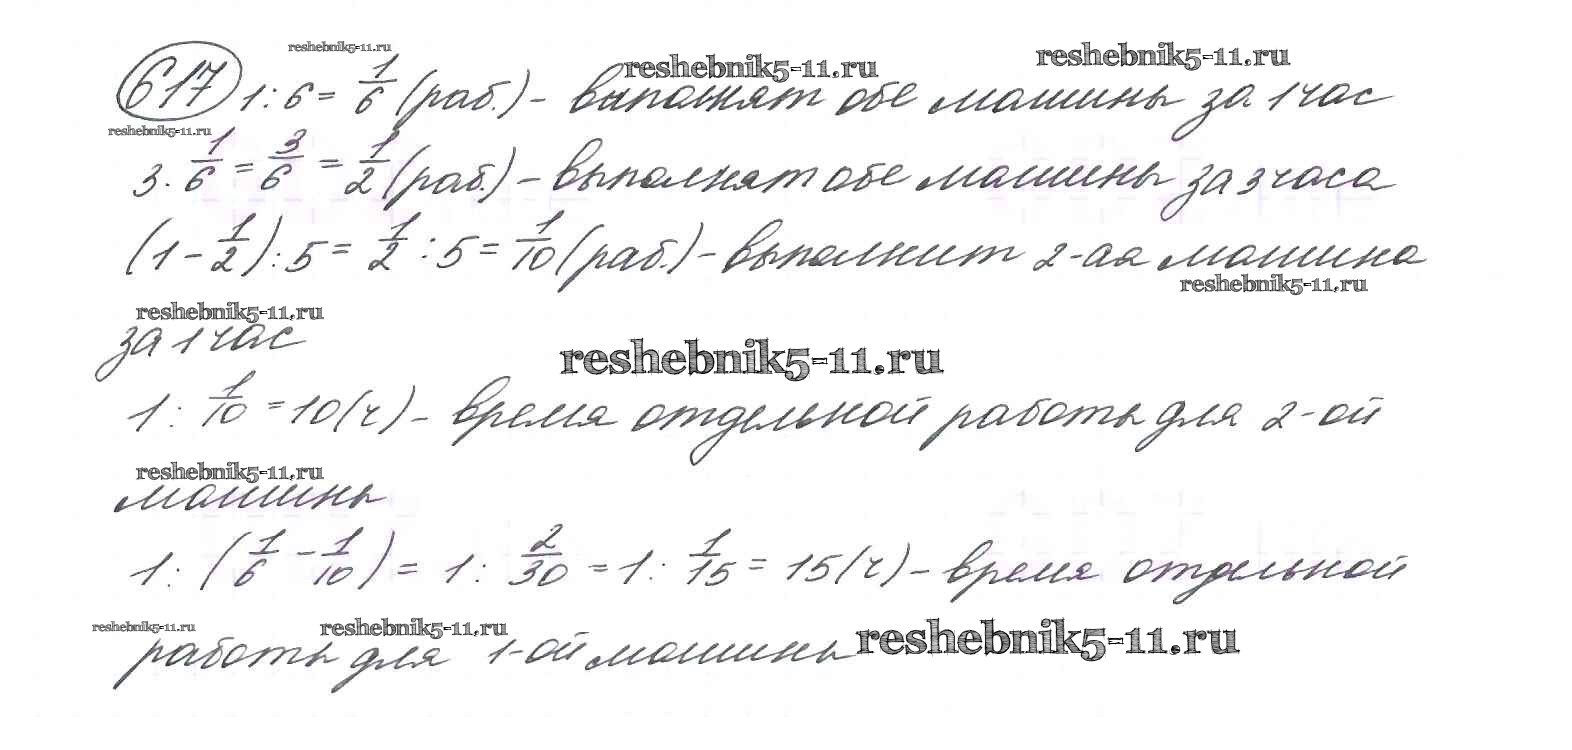 reshebnik5-11.ru
reshebnik5-11.ru
reshebnik5-11.ru
617 1:6= 1/6 (раб.) - выполнят обе машины за 1 час
reshebnik5-11.ru
3·1/6=3/6=1/2 (раб.) - выполнят обе машины за 3 часа
(1-1/2):5=1/2:5=1/10 (раб.) - выполнит 2-ая машина
reshebnik5-11.ru
reshebnik5-11.ru
за 1 час
reshebnik5-11.ru
1:1/10=10(ч) - время отдельной работы для 2-ой
reshebnik5-11.ru
машины
1:(1/6-1/10)=1:2/30=1:1/15=15(ч) - время отдельной
reshebnik5-11.ru
reshebnik5-11.ru
reshebnik5-11.ru
работы для 1-ой машины